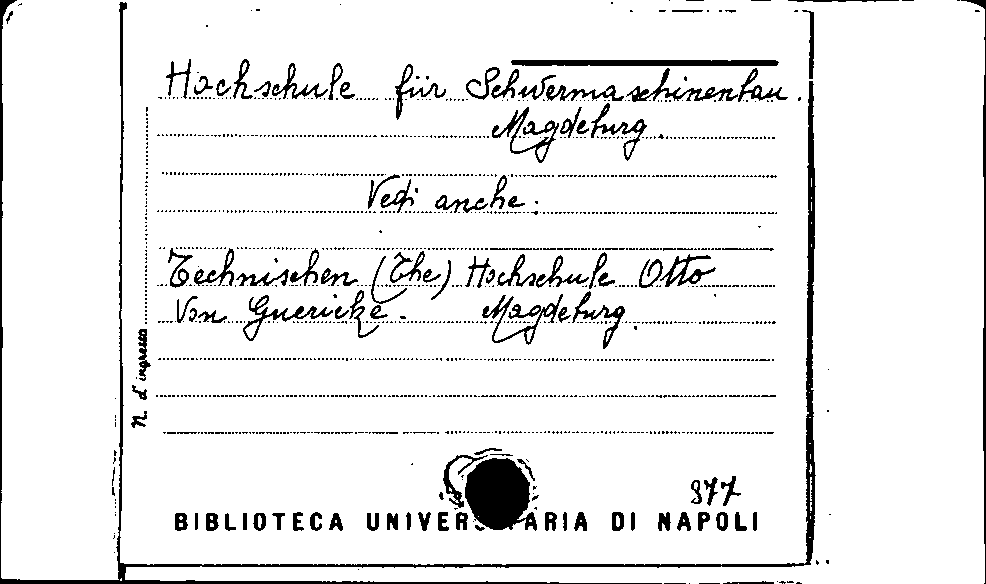 Hochschule für Schwermaschinenbau.
Magdeburg.
Vedi anche:
Technischen (The) Hochschule Otto
Von Guericke. Magdeburg.
N. d'ingresso
877
BIBLIOTECA UNIVERSITARIA DI NAPOLI